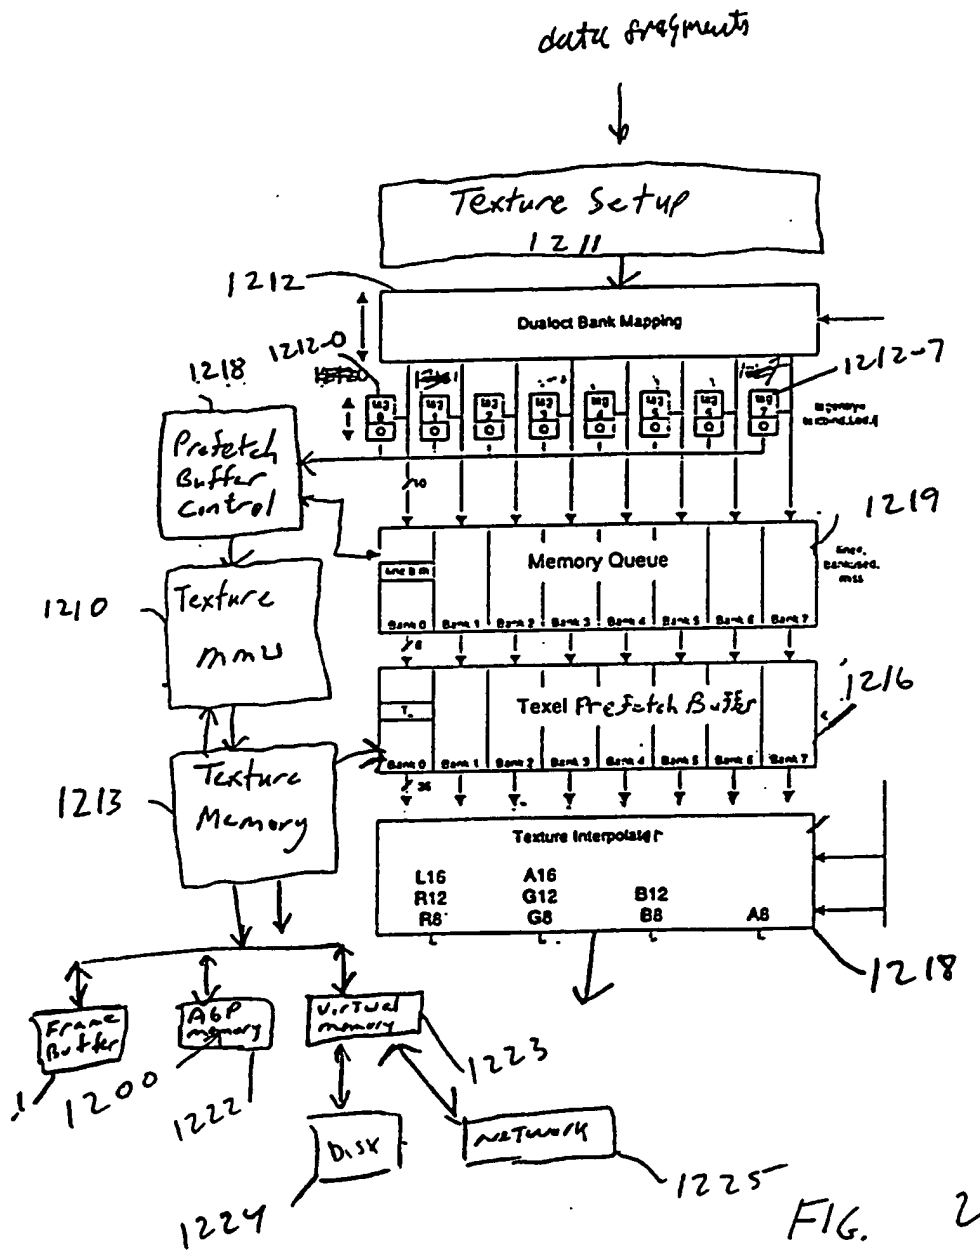 data fragments
Texture Setup
1211
1212
Dualoct Bank Mapping
1212-0
1212-7
1218
tag
0
0
tag
0
tag
2
0
tag
3
0
tag
4
0
tag
5
0
tag
6
0
tag
7
0
Prefetch
Buffer
Control
1219
Memory Queue
Bank 0
Bank 1
Bank 2
Bank 3
Bank 4
Bank 5
Bank 6
Bank 7
1210
Texture
MMU
1216
Texel Prefetch Buffer
Bank 0
Bank 1
Bank 2
Bank 3
Bank 4
Bank 5
Bank 6
Bank 7
36
1213
Texture
Memory
Texture Interpolator
L16 A16
R12 G12 B12
R8 G8 B8 A8
1218
Frame
Buffer
AGP
memory
Virtual
memory
1200
1222
1223
Disk
Network
1224
1225
FIG. 2